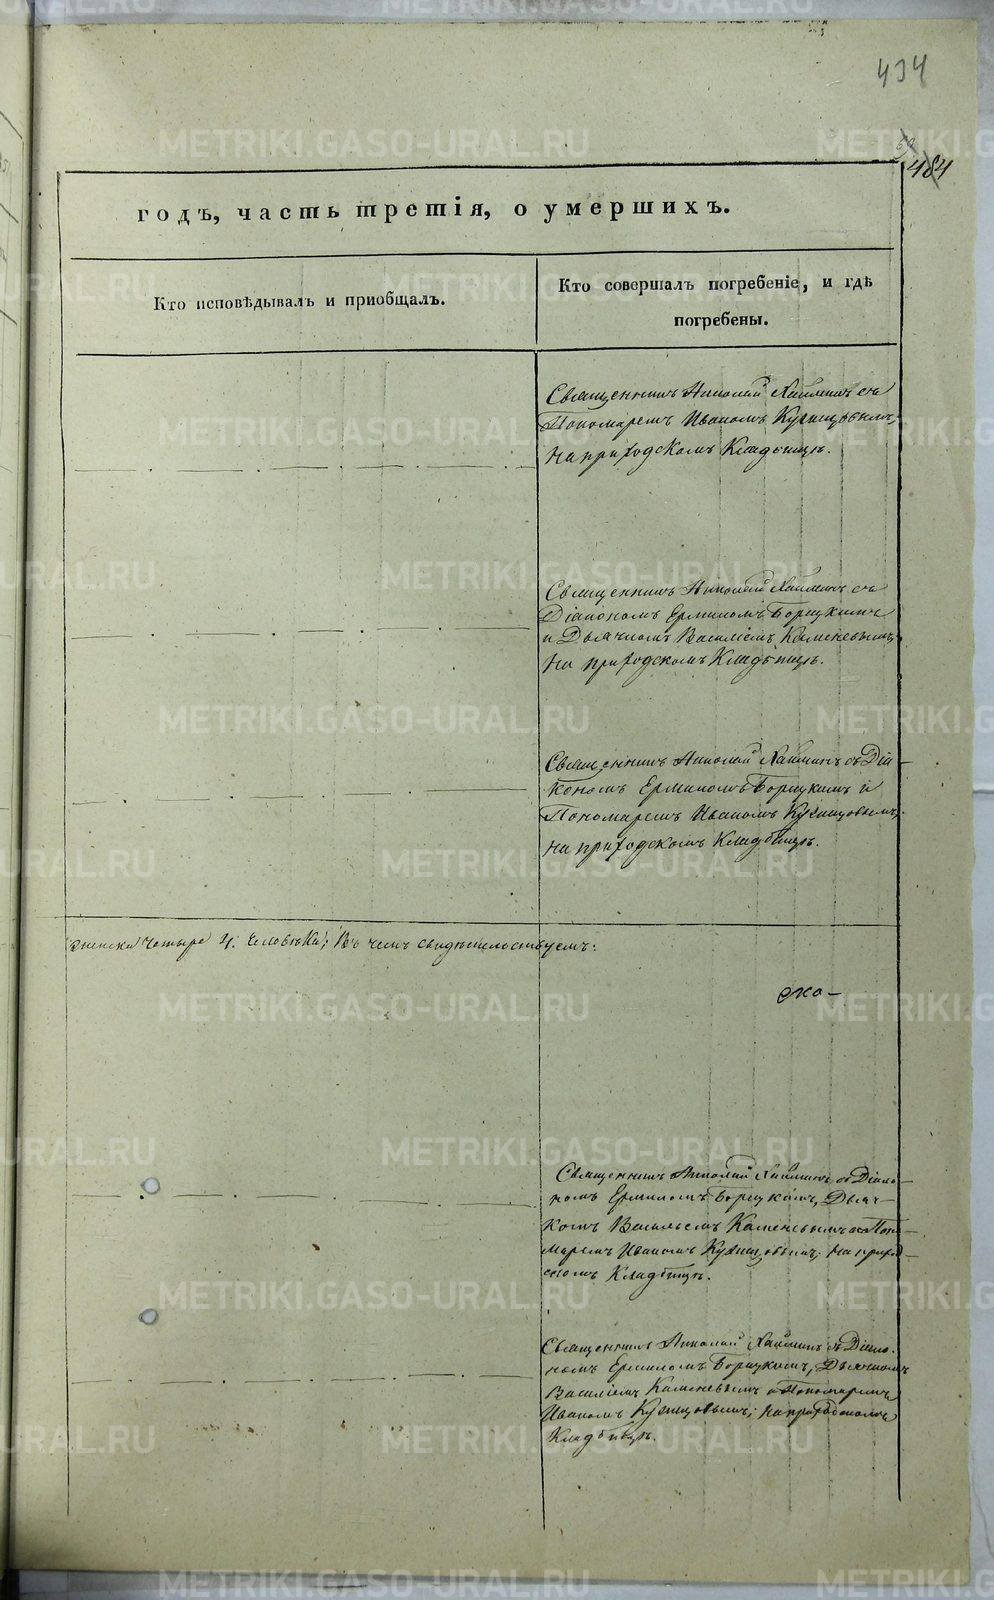 434
484
годъ, часть третія, о умершихъ.
Кто исповѣдывалъ и приобщалъ.
Кто совершалъ погребеніе, и гдѣ
погребены.
Священникъ Николай съ
Пономаремъ Иваномъ Кузнецовымъ,
на приходскомъ Кладбищѣ.
Священникъ Николай съ
Діакономъ Ермиломъ Борецкимъ
и Дьячкомъ Василіемъ Каменевымъ,
на приходскомъ Кладбищѣ.
Священникъ Николай съ Діа-
кономъ Ермиломъ Борецкимъ и
Пономаремъ Иваномъ Кузнецовымъ,
на приходскомъ Кладбищѣ.
женска четыре 4. человѣка; Въ чемъ свидѣтельствуемъ:
Священникъ Николай съ Діако-
номъ Ермиломъ Борецкимъ, Дьяч-
комъ Васильемъ Каменевымъ и Поно-
маремъ Иваномъ Кузнецовымъ; на приход-
скомъ Кладбищѣ.
Священникъ Николай съ Діако-
номъ Ермиломъ Борецкимъ, Дьячкомъ
Василіемъ Каменевымъ и Пономаремъ
Иваномъ Кузнецовымъ; на приходскомъ
Кладбищѣ.
METRIKI.GASO-URAL.RU